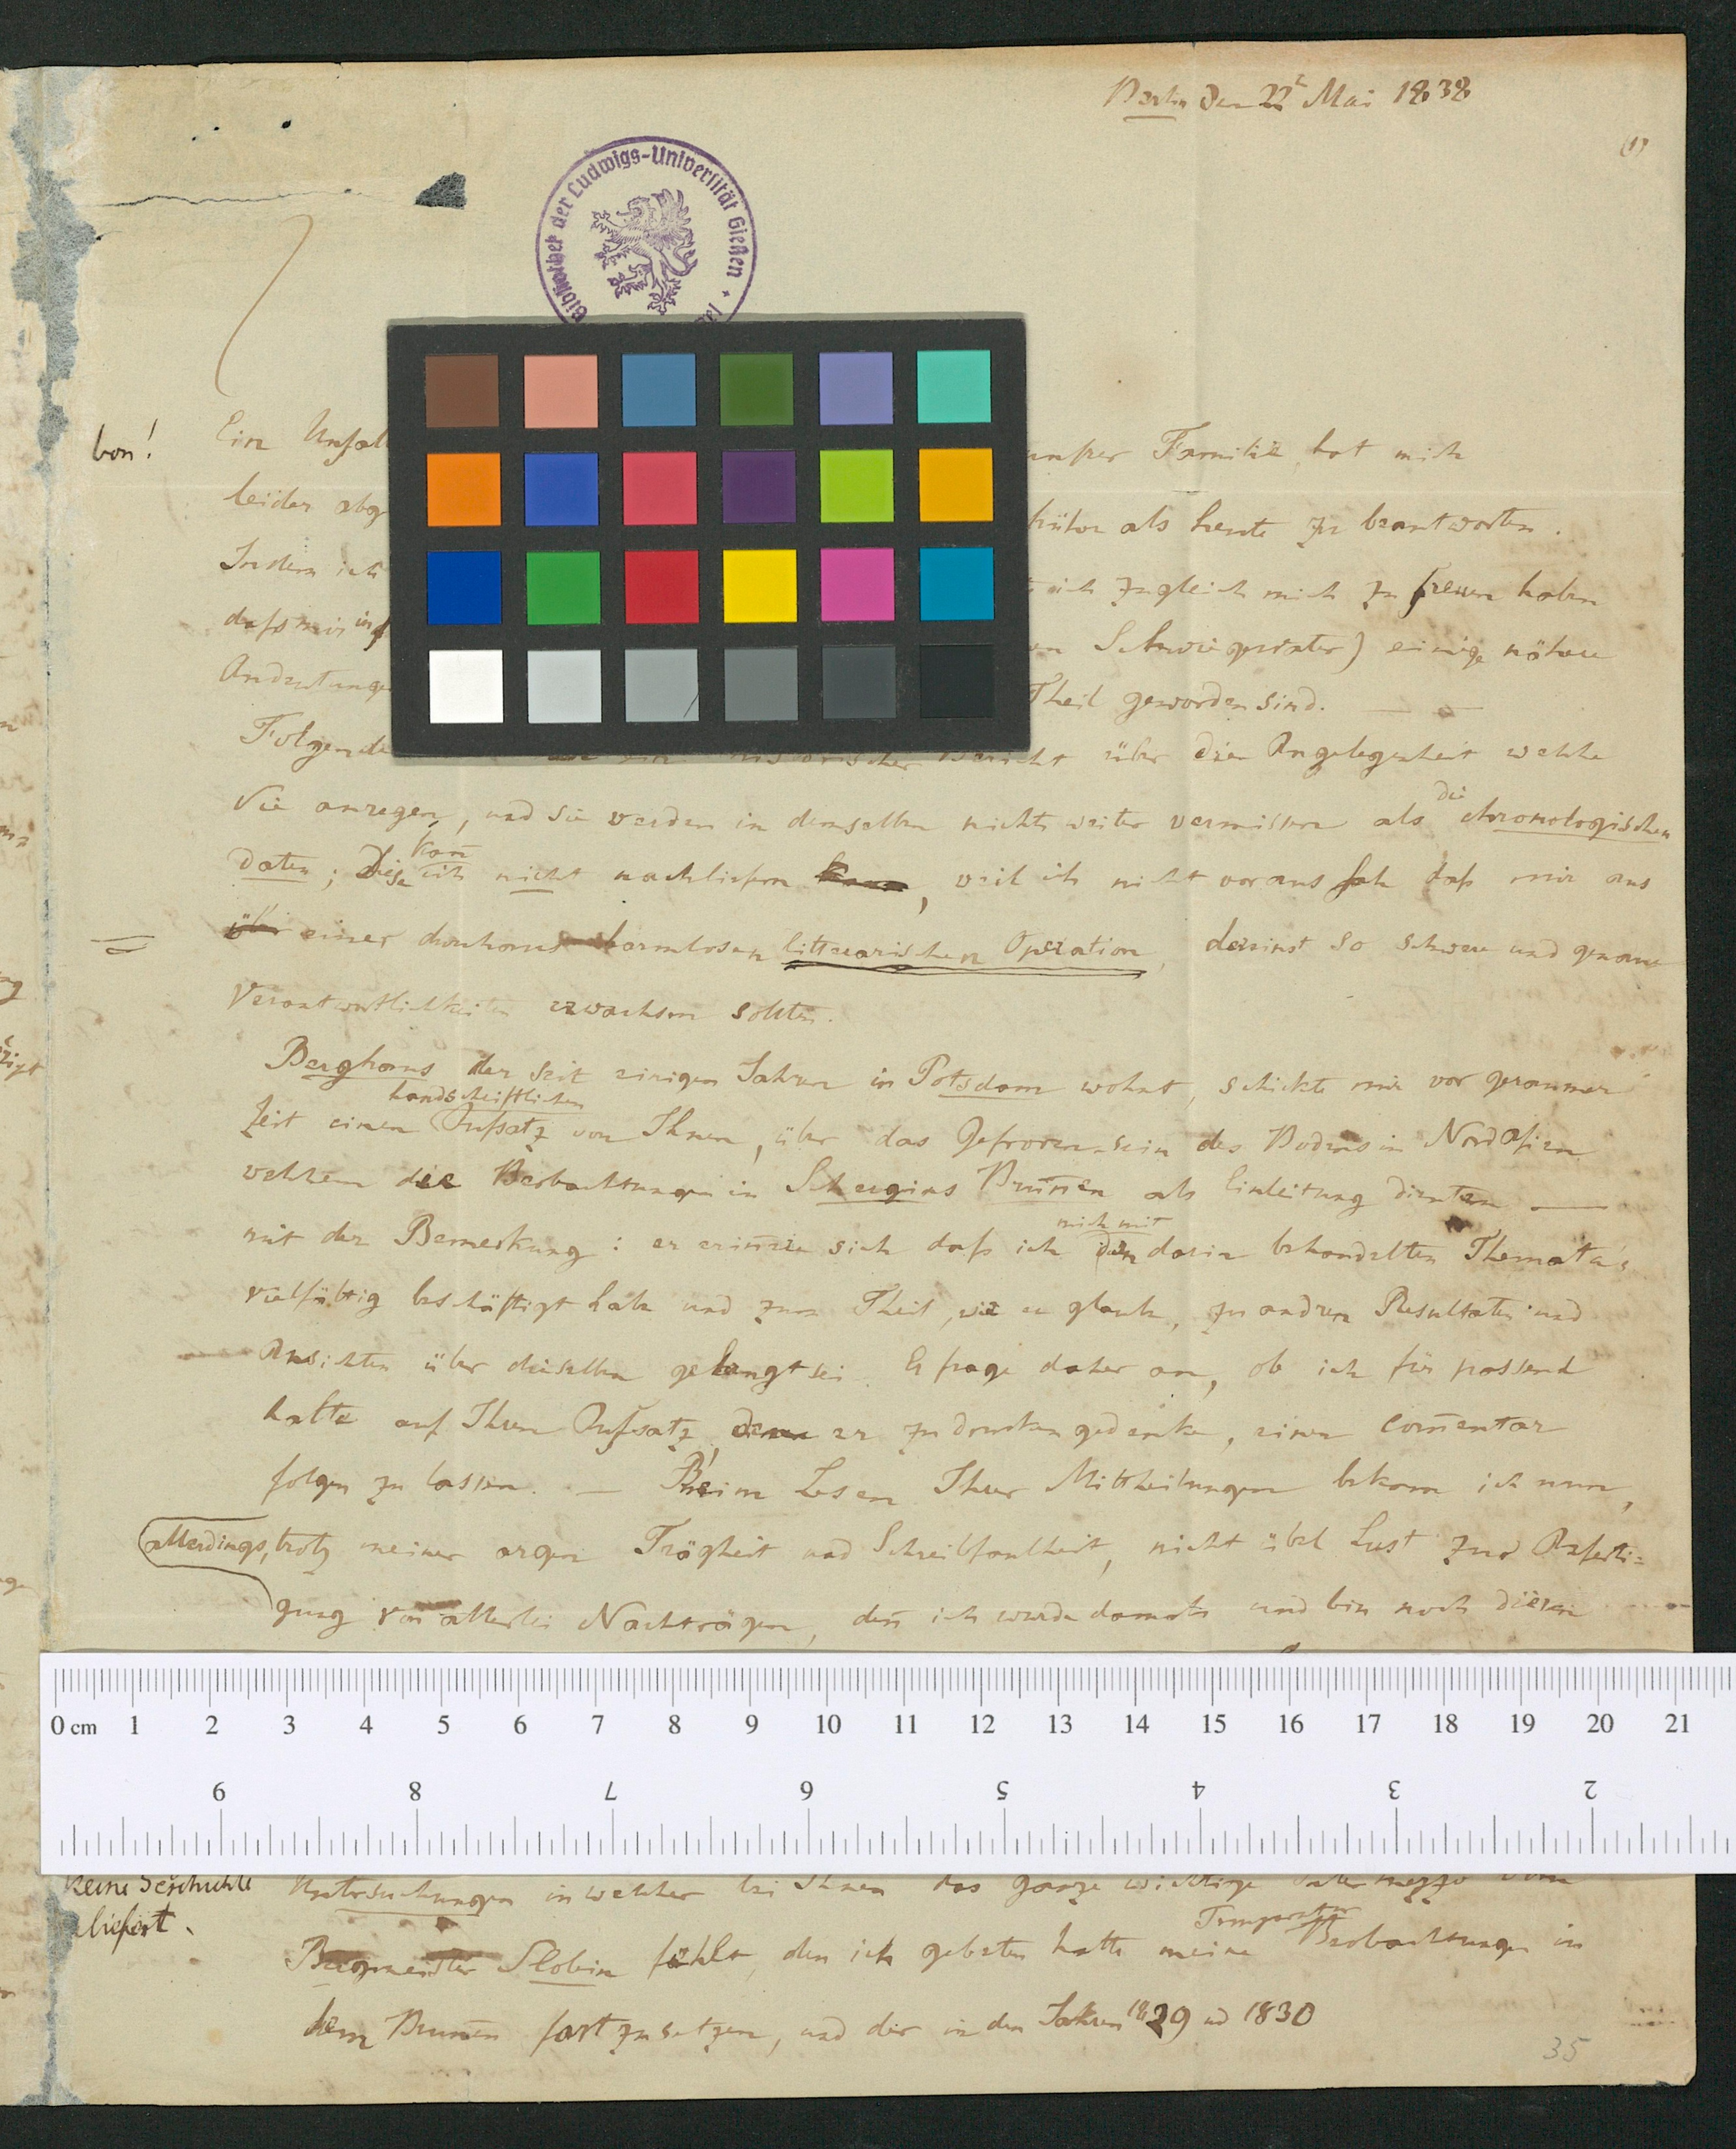 Berlin den 22t Mai 1838
(1)
Bibliothek der Ludwigs-Universität Gießen
bon!
Ein Unfal
unsrer Familie hat mich
leider abg
früher als heute zu beantworten.
Indem ich
ich zugleich mich zu freuen haben
daß mir in
Schwiegervater) einige nähere
Andeutunge
Theil geworden sind. —
Folgende
historischer Bericht über die Angelegenheit welche
Sie anregen, und Sie werden in demselben nichts weiter vermissen als die chronologischen
daten; Diese kan̄ ich nicht nachliefern kann, weil ich nicht voraus sah daß mir aus
über einer durchaus harmlosen litterarischen Operation, dereinst so schwere und genaue
Verantwortlichkeiten erwachsen sollten.
Berghaus der seit einigen Jahren in Potsdam wohnt, schickte mir vor geraumer
Zeit einen handschriftlichen Aufsatz von Ihnen, über das Gefroren-sein des Bodens in Nordasien
welchem die Beobachtungen in Schergins Brun̄en als Einleitung dienten —
mit der Bemerkung: er erin̄re sich daß ich mich mit den darin behandelten Themata's
vielfältig beschäftigt habe und zum Theil, wie er glaube, zu andren Resultaten und
Ansichten über dieselben gelangt sei. Er frage daher an, ob ich für passend
halte auf Ihren Aufsatz, den er zu drucken gedenke, einen Com̄entar
folgen zu lassen. — Beim Lesen Ihrer Mittheilungen bekam ich nun,
allerdings, trotz meiner argen Trägheit und Schreibfaulheit, nicht übel Lust zur Anferti=
gung von allerlei Nachträgen, den̄ ich wurde damals und bin noch
0 cm 1 2 3 4 5 6 7 8 9 10 11 12 13 14 15 16 17 18 19 20 21
2 3 4 5 6 7 8 9
keine Geschichte
Untersuchungen in welcher bei Ihnen das ganze wichtige Intermezzo vom
liefert.
Bergmeister Slobin fehlt, den ich gebeten hatte meine Temperatur Beobachtungen in
dem Brun̄en fortzusetzen, und der in den Jahren 1829 ud 1830
35